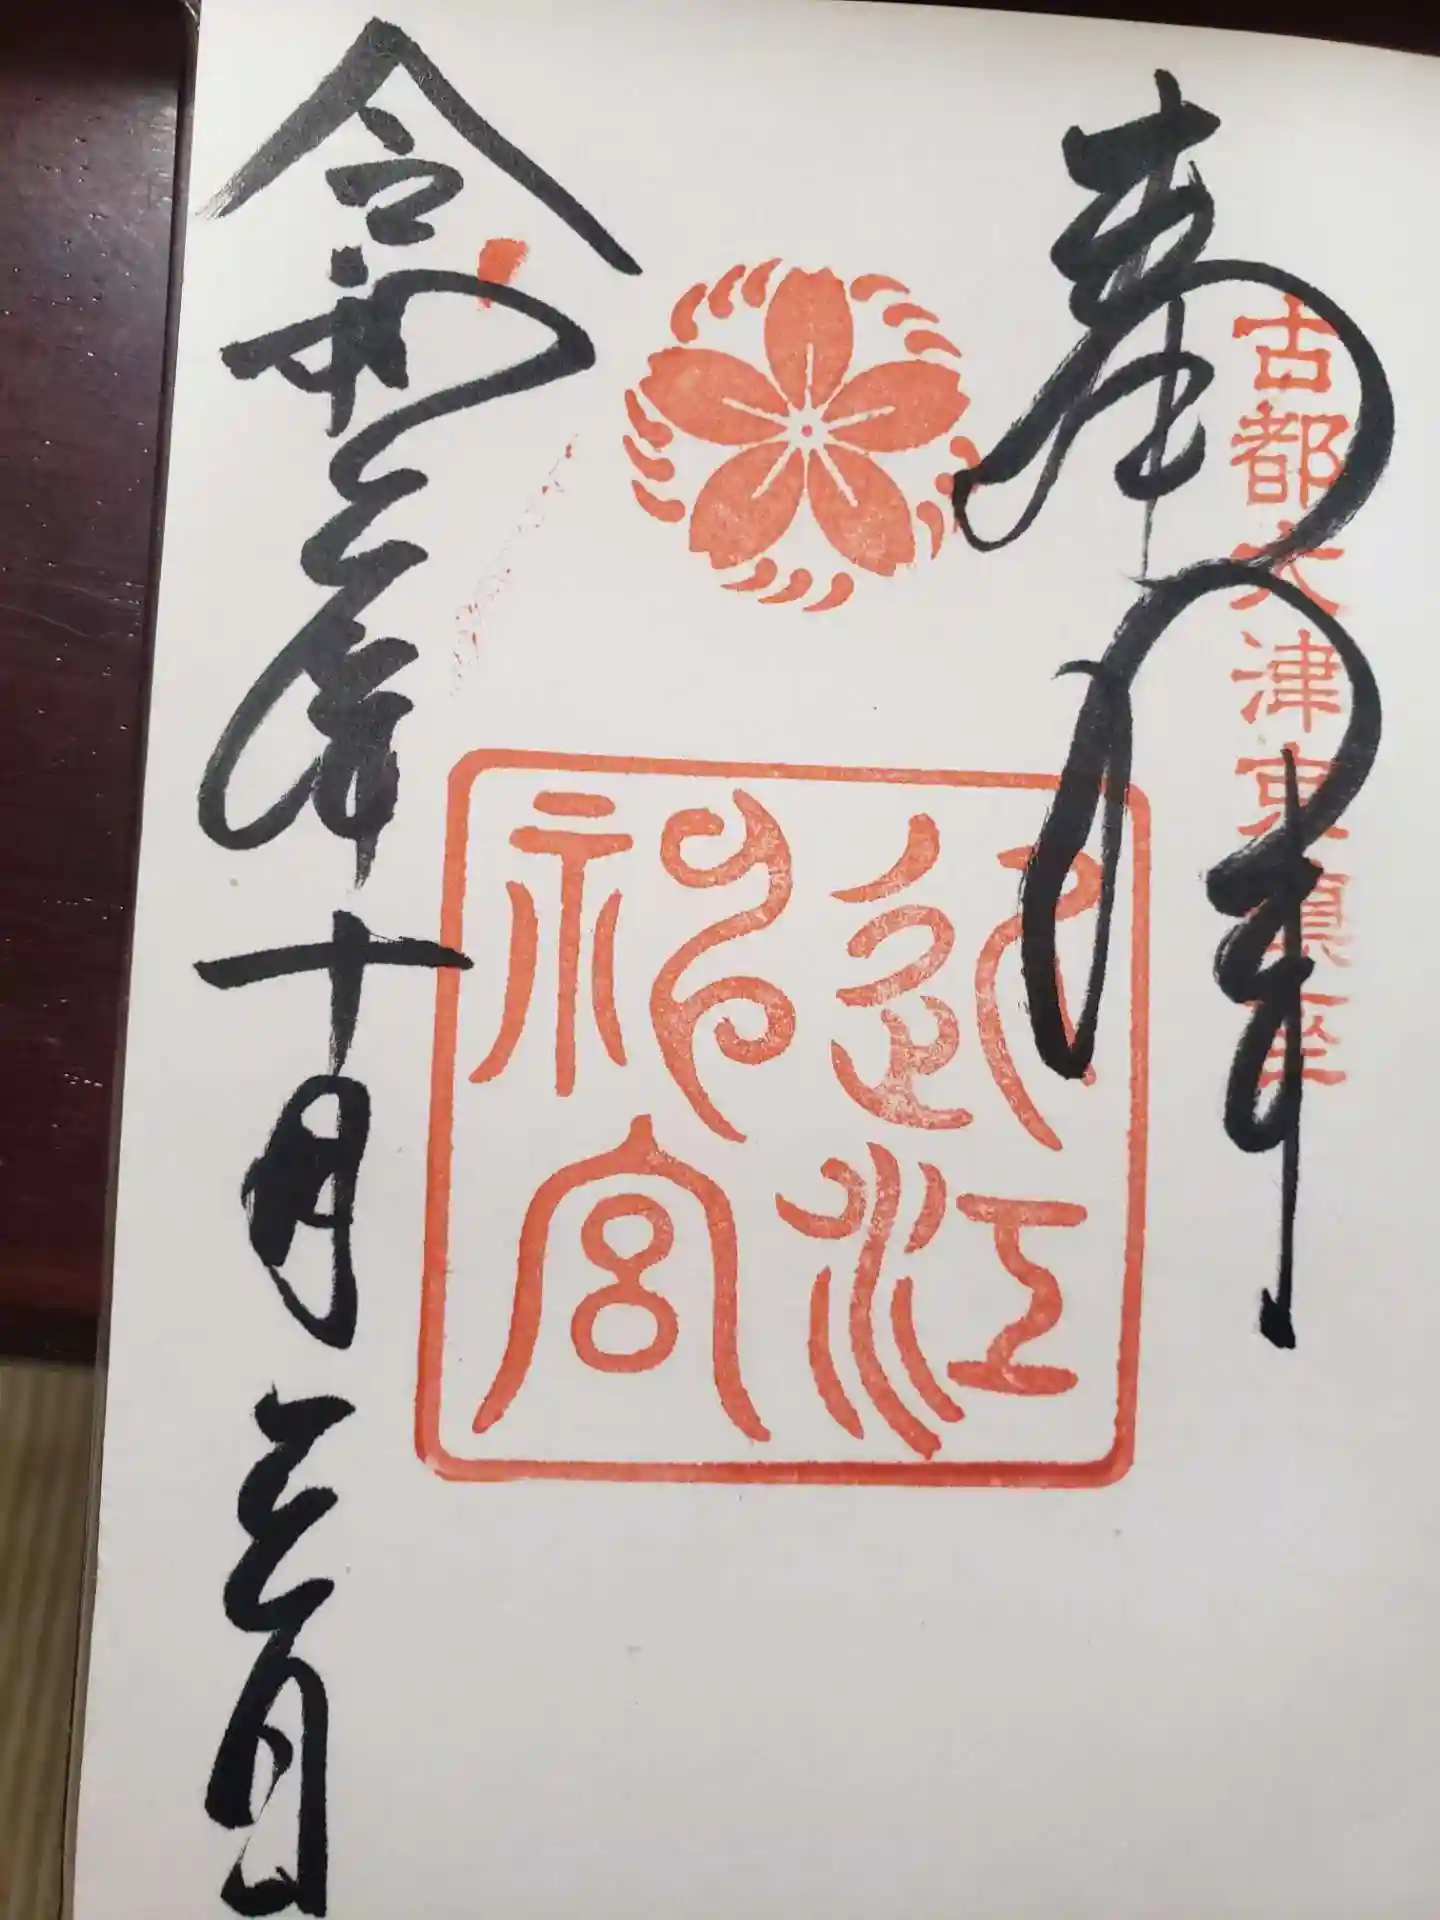 古都大津京鎮座
奉拝
近江
神宮
令和三年十月三日